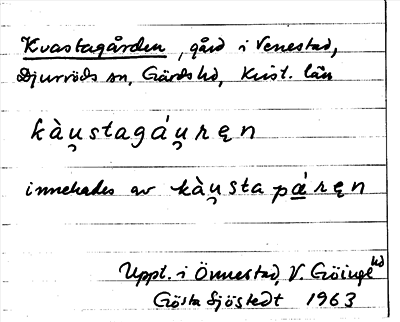 Kvastagården, gård i Venestad,
Djurröds sn, Gärds hd, Krist. län
kàu̯stagáu̯ręn
innehades av kàu̯sta pǽręn
Uppt. i Önnestad, V. Göinge hd
Gösta Sjöstedt 1963